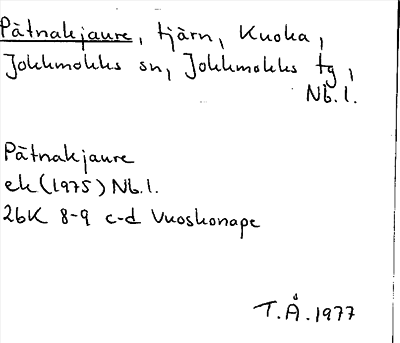 Pätnakjaure, tjärn, Kuoka,
Jokkmokks sn, Jokkmokks tg,
Nb.l.
Pätnakjaure
ek (1975) Nb.l.
26K 8-9 c-d Vuoskonape
T.Å. 1977